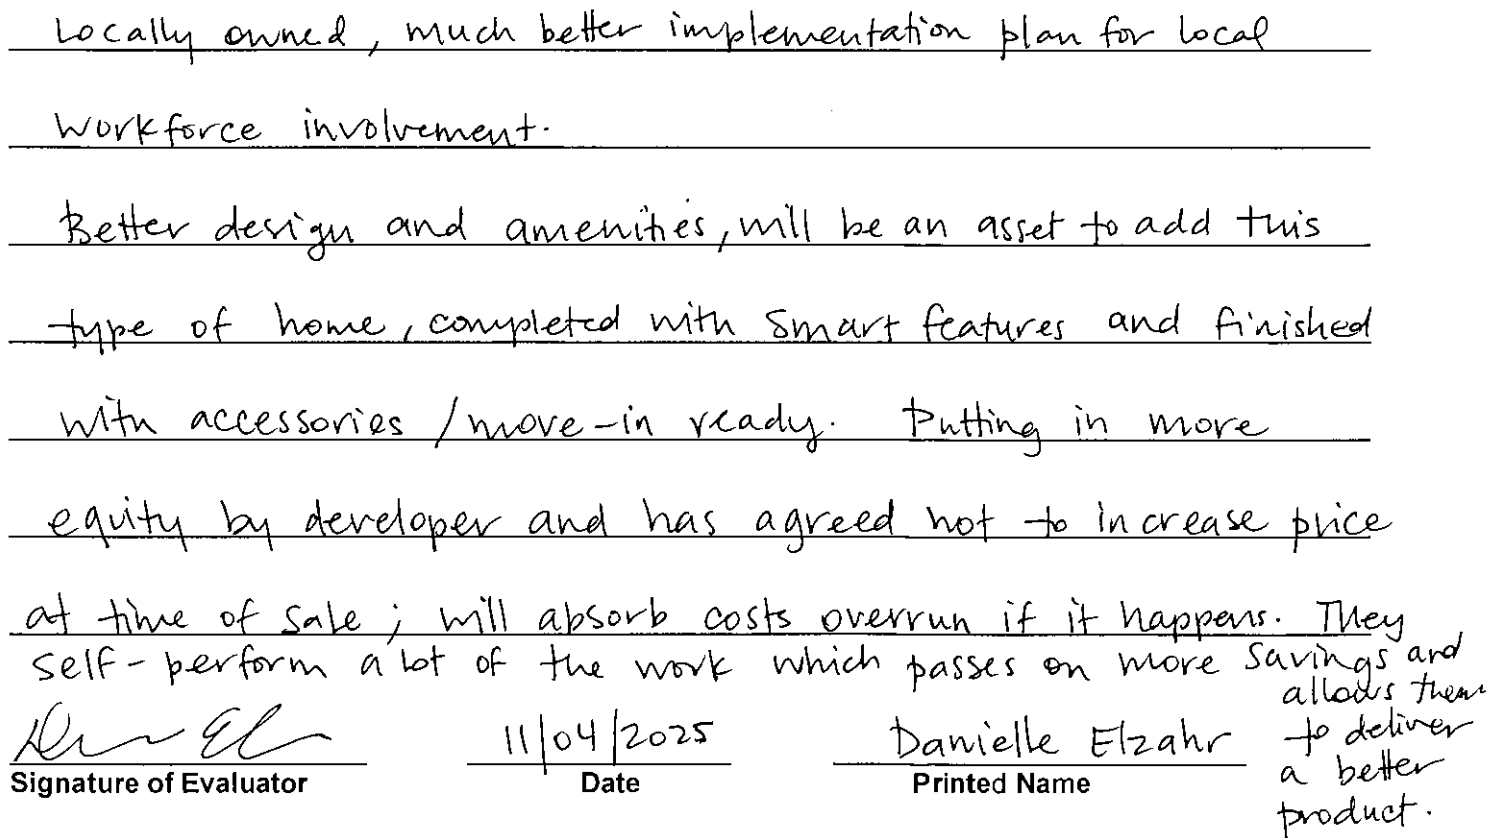 Locally owned, much better implementation plan for local
workforce involvement.
Better design and amenities, will be an asset to add this
type of home, completed with smart features and finished
with accessories / move-in ready. Putting in more
equity by developer and has agreed not to increase price
at time of sale; will absorb costs overrun if it happens. They
self-perform a lot of the work which passes on more savings and
allows them
to deliver
a better
product.
11/04/2025
Danielle Elzahr
Signature of Evaluator
Date
Printed Name